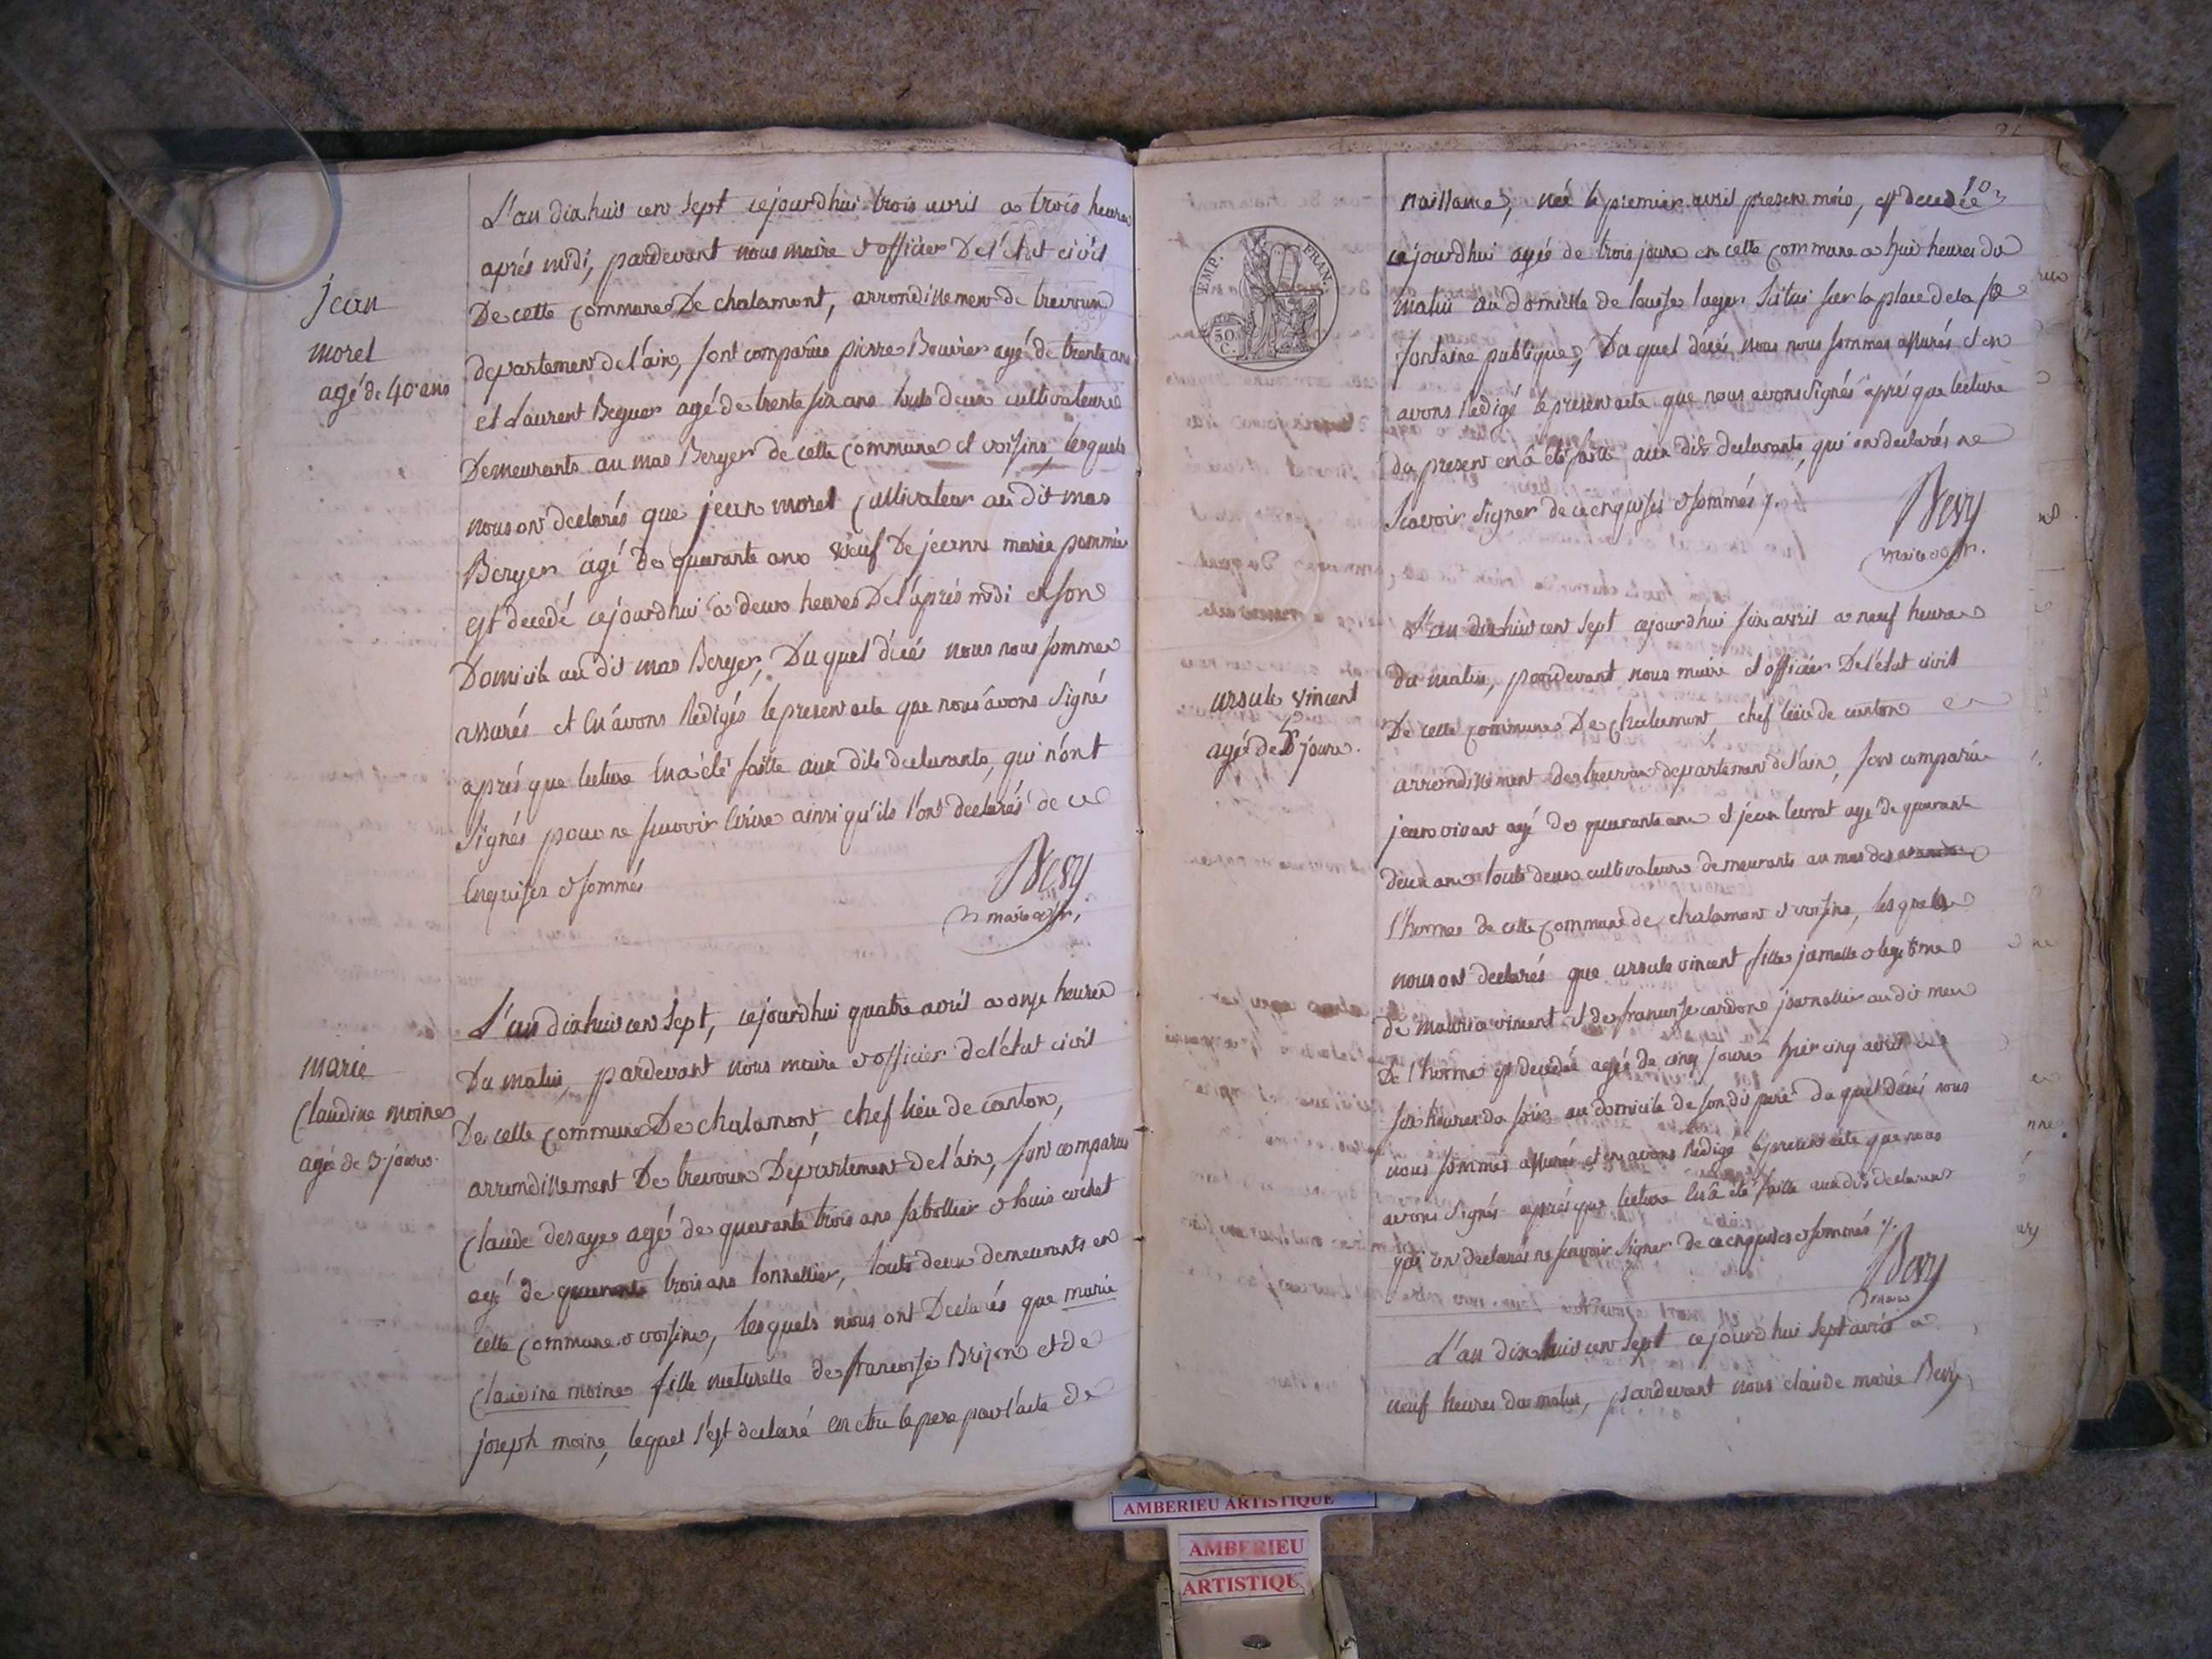 jean
morel
agé de 40 ans
L'an dix huit cent sept cejourdhui trois avril a trois heures
aprés midi, pardevant nous maire et officier De l'état civil
De cette commune De chalamont, arrondissement de trevoux
departement de l'ain, sont comparûs pierre Bouvier agé de trente ans
et Laurent Beguer agé de trente six ans touts deux cultivateurs
Demeurants au mas Berger de cette commune et voisins, lesquels
nous ont declarés que jean morel cultivateur au dit mas
Berger agé de quarante ans veuf De jeanne marie pommier
est decedé cejourdhui a deux heures De l'aprés midi en son
Domicile au dit mas Berger, Du quel décés nous nous sommes
assurés et En avons Rédigés le present acte que nous avons Signé
aprés que lecture En a été faitte aux dits declarants, qui n'ont
Signés pour ne sçavoir Ecrire ainsi qu'ils l'ont declarés de ce
Enquises et sommés
Bevy
maire
marie
Claudine moine
agée de 3 jours.
L'an dix huit cent sept, cejourdhui quatre avril a onze heures
Du matin, pardevant nous maire et officier de l'état civil
De cette commune De chalamont, chef lieu de canton,
arrondissement De trevoux Departement de l'ain, sont comparus
Claude desaye agé de quarante trois ans sabottier et Louis cochet
agé de quarante trois ans tonnellier, touts deux demeurants en
cette commune et voisins, lesquels nous ont Declarés que marie
Claudine moine fille naturelle de francoise Brizon et de
joseph moine, lequel s'est declaré en être le pere par l'acte de
EMP. FRAN.
50 C.
naissance, née le premier avril present mois, est decedée
cejourdhui agée de trois jours en cette commune a huit heures du
matin au domicile de Louise lager Scitui sur la place de la
fontaine publique, Du quel décés nous nous sommes assurés et en
avons Redigé le present acte que nous avons signés apré que lecture
du present en a été faitte aux dits declarants, qui ont declarés ne
Scavoir Signer de ce enquises et sommés ./.
Bevy
maire
ursule vincent
agé de 5 jours.
L'an dix huit cent sept cejourdhui six avril a neuf heures
du matin, pardevant nous maire et officier De l'état civil
De cette commune De Chalamont, chef lieu de canton
arrondissement de trevoux departement de l'ain, sont comparûs
jean vivant agé de quarante ans et jean levrat agé de quarante
deux ans touts deux cultivateurs demeurants au mas de
l'horme de cette commune de chalamont et voisins, les quels
nous ont declarés que ursule vincent fille jumelle et legitime
de maurice vincent et de francoise cardon journallier au dit mas
De l'horme est decedée agée de cinq jours hier cinq avril a
six heures du soir au domicile de son dit pere du quel décés nous
nous sommes assurés et en avons Redigé le present acte que nous
avons Signés aprés que lecture En a été faitte aux dits declarants
qui ont declarés ne scavoir Signer de ce enquises et sommés ./.
Bevy
maire
L'an dix huit cent sept cejourdhui sept avril a
neuf heures du matin, pardevant nous claude marie Bevy
AMBERIEU ARTISTIQUE
AMBERIEU
ARTISTIQUE